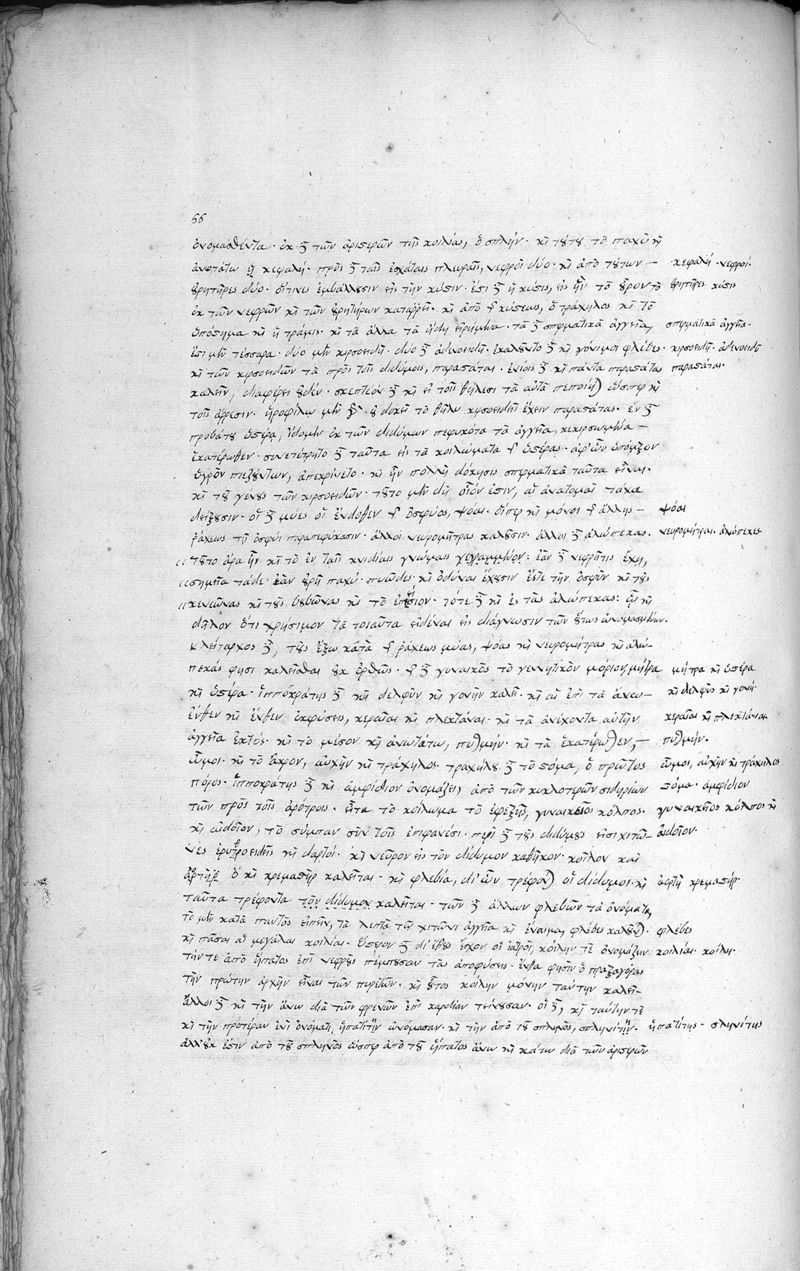 66
ὀνομασθέντα. ἐκ δὲ τῶν ἀριστερῶν τῆς κοιλίας, ὁ σπλήν. καὶ τούτου τὸ παχὺ καὶ
ἀνωτάτω ἡ κεφαλή. πρὸς δὲ ταῖς ἐσχάταις πλευραῖς, νεφροὶ δύο. καὶ ἀπὸ τούτων – κεφαλή. νεφροί.
οὐρητῆρες δύο. οἵτινες ἐμβάλλουσιν εἰς τὴν κύστιν. ἔστι δὲ ἡ κύστις, εἰς ἣν τὸ οὖρον τὸ οὐρητῆρες κύστις
ἐκ τῶν νεφρῶν καὶ τῶν οὐρητήρων καταῤῥεῖ. καὶ ἀπὸ τῆς κύστεως, ὁ τράχηλος καὶ τὸ
ὑπόστημα καὶ ἡ τράμις. καὶ τὰ ἄλλα τὰ ἤδη εἰρημένα. τὰ δὲ σπερματικὰ ἀγγεῖα, σπερματικὰ ἀγγεῖα.
ἐστὶ μὲν τέσσαρα. δύο μὲν κιρσοειδῆ. δύο δὲ ἀδενοειδῆ. ἐκαλοῦντο δὲ καὶ γόνιμοι φλέβες. κιρσοειδῆ. ἀδενοειδῆ
καὶ τῶν κιρσοειδῶν τὰ πρὸς τοῖς διδύμοις, παραστάται. ἐνίοις δὲ καὶ πάντα παραστάτας παραστάται.
καλεῖν, διαφέρει οὐδέν. σκεπτέον δὲ καὶ εἰ τοῖς θήλεσι τὰ αὐτὰ πεποίηται ὥσπερ καὶ
τοῖς ἄῤῥεσιν. ἡροφίλῳ μὲν γὰρ οὐ δοκεῖ τὸ θῆλυ κιρσοειδεῖς ἔχειν παραστάτας. ἐν δὲ
προβάτου ὑστέρᾳ, εἴδομεν ἐκ τῶν διδύμων πεφυκότα τὰ ἀγγεῖα, κεκιρσωμένα –
ἑκατέρωθεν. συνετέτρητο δὲ ταῦτα εἰς τὰ κοιλώματα τῆς ὑστέρας. ἀφ' ὧν ὑπόμυξον
ὑγρὸν πιεζούντων, ἀπεκρίνετο. καὶ ἦν πολλὴ δόκησις σπερματικὰ ταῦτα εἶναι.
καὶ τοῦ γένους τῶν κιρσοειδῶν. τοῦτο μὲν δὴ οἷόν ἐστιν, αἱ ἀνατομαὶ τάχα
δείξουσιν. οἱ δὲ μύες οἱ ἔνδοθεν τῆς ὀσφύος, ψόαι. οἵπερ καὶ μόνοι τῆς ἄλλης – ψόαι
ῥάχεως τῇ ὀσφύϊ παραπεφύκασιν. ἄλλοι νευρομήτρας καλοῦσιν. ἄλλοι δὲ ἀλώπεκας. νευρομῆτραι. ἀλώπεκες
τοῦτο ἄρα ἦν καὶ τὸ ἐν ταῖς κνιδίαις γνώμαις γεγραμμένον: ἐὰν δὲ νεφρῖτις ἔχῃ,
σημεῖα τάδε. ἐὰν οὐρῇ παχὺ. πυῶδες. καὶ ὀδύναι ἔχουσιν ἔς τε τὴν ὀσφῦν καὶ τοὺς
κενεῶνας καὶ τοὺς βουβῶνας καὶ τὸ ἐπίσιον. τότε δὲ καὶ ἐς τὰς ἀλώπεκας: ᾧ καὶ
δῆλον ὅτι χρήσιμον τὰ τοιαῦτα εἰδέναι εἰς διάγνωσιν τῶν οὕτως ὠνομασμένων.
κλείταρχος δὲ, τοὺς ἔξω κατὰ τῆς ῥάχεως μύας, ψόας καὶ νευρομήτρας καὶ ἀλώ-
πεκάς φησι καλεῖσθαι οὐκ ὀρθῶς. τῆς δὲ γυναικὸς τὸ γεννητικὸν μόριον, μήτρα μήτρα καὶ ὑστέρα
καὶ ὑστέρα. ἱπποκράτης δὲ καὶ δελφῦν καὶ γονὴν καλεῖ. καὶ αἱ ἐπὶ τὰ ἄνω – καὶ δελφῦς καὶ γονή.
ἔνθεν καὶ ἔνθεν ἐκφύσεις, κεραῖαι καὶ πλεκτάναι. καὶ τὰ ἀνέχοντα αὐτὴν κεραῖαι καὶ πλεκτάναι
ἀγγεῖα ἐκτός. καὶ τὸ μέσον καὶ ἀνωτάτω, πυθμήν. καὶ τὰ ἑκατέρωθεν, – πυθμήν.
ὦμοι. καὶ τὸ ἄκρον, αὐχὴν καὶ τράχηλος. τραχήλου δὲ τὸ στόμα, ὁ πρῶτος ὦμοι, αὐχὴν καὶ τράχηλος
πόρος. ἱπποκράτης δὲ καὶ ἀμφίδιον ὀνομάζει, ἀπὸ τῶν κυκλοτερῶν σιδηρίων στόμα. ἀμφίδιον
τῶν πρὸς τοῖς ἀρότροις. εἶτα τὸ κοίλωμα τὸ ἐφεξῆς, γυναικεῖος κόλπος. γυναικεῖος κόλπος καὶ
καὶ αἰδοῖον, τὸ σύμπαν σὺν τοῖς ἐπιφανέσι. περὶ δὲ τοὺς διδύμους εἰσὶ χιτῶ- αἰδοῖον.
νες ἐρυθροειδεῖς καὶ δαρτοί. καὶ νεῦρον εἰς τὸν δίδυμον καθῆκον. κοῖλον καὶ
ἀρτηρ ὃ καὶ κρεμαστὴρ καλεῖται. καὶ φλεβία, δι' ὧν τρέφονται οἱ δίδυμοι. καὶ ἀορτὴ κρεμαστήρ
ταῦτα τρέφοντα τὸν δίδυμον καλεῖται. τῶν δὲ ἄλλων φλεβῶν τὰ ὀνόματα,
τὸ μὲν κατὰ παντὸς εἰπεῖν, τὰ λεπτὰ τῷ χιτῶνι ἀγγεῖα καὶ ἔναιμα, φλέβες καλεῖται. φλέβες
καὶ πᾶσαι αἱ μεγάλαι κοιλίαι. ὕστερον δὲ δι' ἔθους ἔσχον οἱ ἰατροὶ, κοίλην τε ὀνομάζειν κοιλίαι. κοίλη.
τήν τε ἀπὸ ἥπατος ἐπὶ νεφροὺς πέμπουσαν τὰς ἀποφύσεις. ἔνθα φησὶν ὁ πραξαγόρας
τὴν πρώτην ἀρχὴν εἶναι τῶν πυρετῶν. καὶ οὗτος κοίλην μόνην ταύτην καλεῖ.
ἄλλοι δὲ καὶ τὴν ἄνω διὰ τῶν φρενῶν ἐπὶ καρδίαν τείνουσαν. οἱ δὲ, καὶ ταύτην τε
καὶ τὴν προτέραν ἑνὶ ὀνόματι, ἡπατῖτιν ὠνόμασαν. καὶ τὴν ἀπὸ τοῦ σπληνὸς, σπληνῖτιν. ἡπατίτης. σπληνίτης
ἀλλ' οὐκ ἔστιν ἀπὸ τοῦ σπληνὸς ὥσπερ ἀπὸ τοῦ ἥπατος ἄνω καὶ κάτω διὰ τῶν ἀριστερῶν